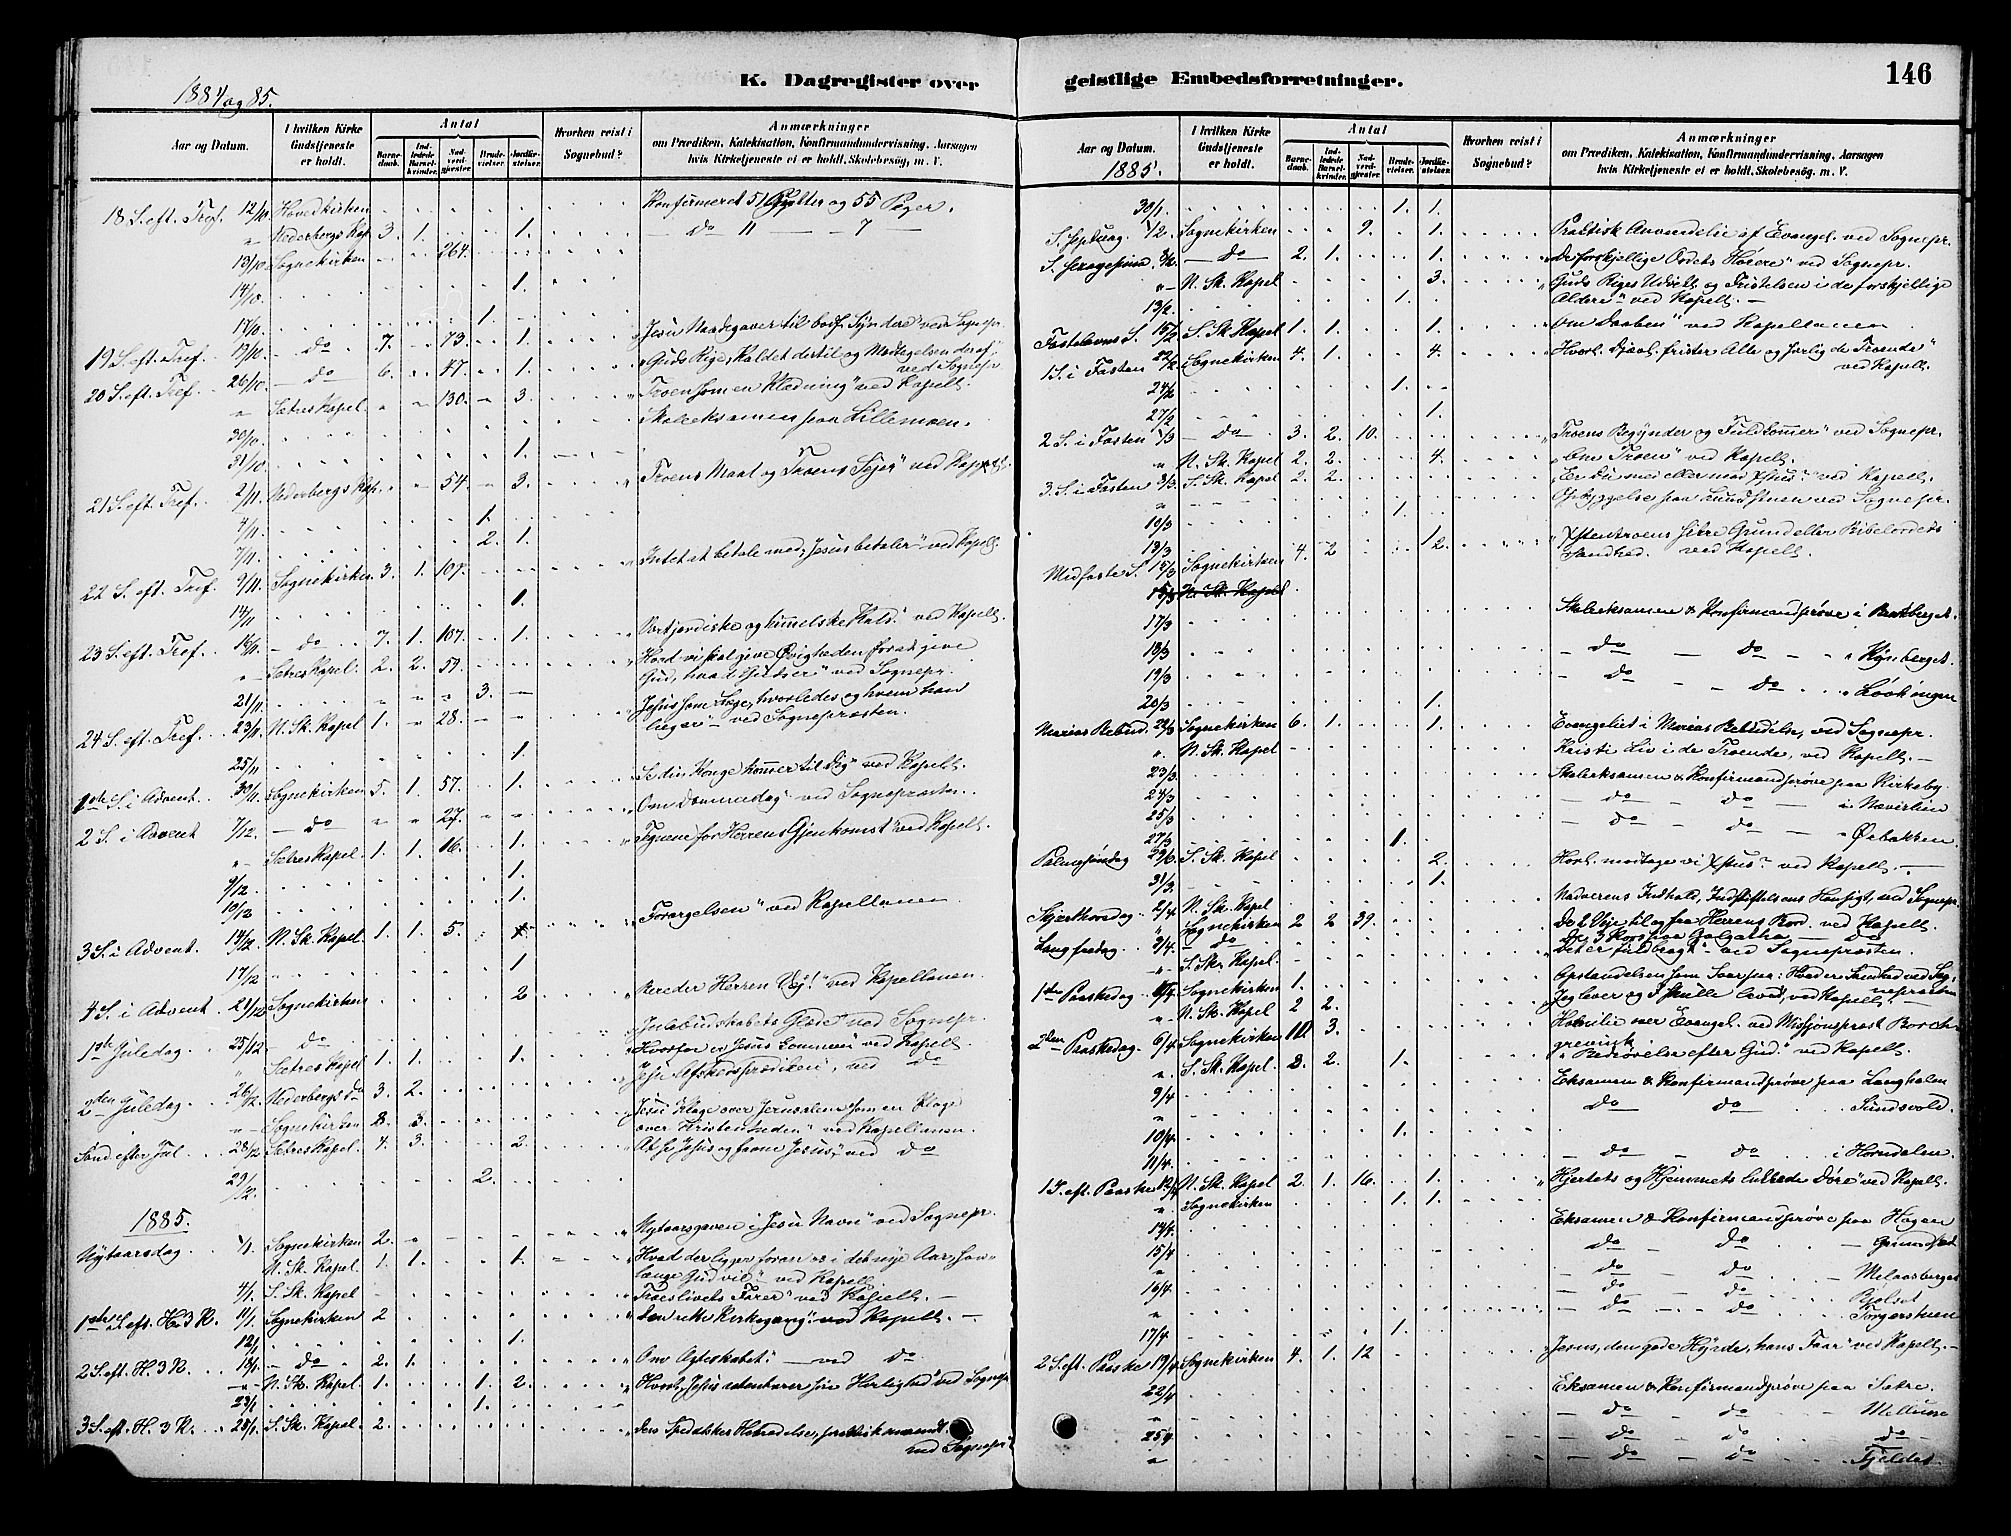 K. Dagregister over geistlige Embedsforretninger.
146
1884 og 85.
Aar og Datum.
I hvilken Kirke Gudstjeneste er holdt.
Antal
Barnedaab.
Indledede Barselkvinder.
Nadverdgjæster.
Brudevielser.
Jordfæstelser.
Hvorhen reist i Sognebud?
Anmærkninger
om Prædiken, Katekisation, Konfirmandundervisning, Aarsagen
hvis Kirketjeneste ei er holdt, Skolebesøg, m. V.
18 S. eft. Tref. 12/10 Hovedkirken Konfirmeret 51 Gutter og 55 Piger.
" Nederbergs Kap. 3. 1. 1. — Do 11 — 7 —
13/10 Sognekirken 264.
14/10 1.
17/10 1.
19 S. eft. Tref. 19/10 — Do — 7. 73. 1. "Jesu Naadegaver til bodf. Syndere" ved Sognepr.
20 S. eft. Tref. 26/10 — Do — 6. 47. 1. "Guds Rige, Kaldet dertil og Modtagelsen deraf" ved Sognepr.
" Sætres Kapel. 130. 3. "Troen som en Klædning" ved Kapell.
30/10 Skoleeksamen paa Lillemoen.
31/10 1.
21 S. eft. Tref. 2/11 Nederbergs Kap. 54. 3. "Troens Maal og Troens Seier" ved Kapell.
4/11 1.
7/11 2. 1.
22 S. eft. Tref. 9/11 Sognekirken 3. 1. 109. "Intet at betale med, Jesus betaler" ved Kapell.
14/11 1.
23 S. eft. Tref. 16/11 — Do — 7. 1. 107. 1. "Vort jordiske og himmelske Kald" ved Kapell.
" Sætres Kapel. 2. 2. 59. "Hvad vi skal give Øvrigheden for at give
Gud, hvad Guds er" ved Sognepr.
21/11 3.
24 S. eft. Tref. 23/11 N. Sk. Kapel 1. 28. "Jesus som Læge, hvorledes og hvem han
læger" ved Sognepræsten.
25/11 1.
1ste S. i Advent. 30/11 Sognekirken 5. 1. 57. 1. "Se din Konge kommer til Dig" ved Kapell.
2 S. i Advent 7/12 — Do — 27. "Om Dommedag" ved Sognepræsten.
" Sætres Kapel. 1. 1. 16. 1. "Tegnene for Herrens Gjenkomst" ved Kapell.
9/12 1.
10/12 1.
3 S. i Advent. 14/12 N. Sk. Kapel 1. 1. 5. "Forargelsen" ved Kapellanen
17/12 1
4 S. i Advent 21/12 Sognekirken 2 "Bereder Herren Vej!" ved Kapellanen.
1ste Juledag 25/12 — Do "Julebudskabets Glæde" ved Sognepr.
" Sætres Kapel 1. 1. 1. "Hvorfor er Jesus kommen" ved Kapell.
2den Juledag 26/12 Nederbergs Do 3 2. "Jesu Afskedsprædiken", ved Do
" Sognekirken 8. 3. "Jesu Klage over Jerusalem som en Klage
over Kristenheden" ved Kapellanen.
Sønd. efter Jul 28/12 Sætres Kapel. 4. 3. 2. "At se Jesus og favne Jesus", ved Do
29/12 2.
1885.
Nytaarsdag 1/1 Sognekirken 2. "Nytaarsgaven i Jesu Navn" ved Sognepr.
N. Sk. Kapel. 1. 1. 1. "Hvad der ligger foran os i det nye Aar, saa
længe Gud vil" ved Kapell.
4/1 S. Sk. Kapel "Troeslivets Farer" ved Kapell.
1ste S. eft. H. 3 K. 11/1 Sognekirken 2 "Den rette Kirkegang" ved Kapell.
12/1 1.
2 S. eft. H. 3 K. 18/1 — Do 2. 1. "Om Ægteskabet" — ved Do
" N. Sk. Kapel 1. 1. 2. "Hvorl. Jesus aabenbarer sin Herlighed" ved Sognepr
23/1 1.
3 S. eft. H. 3 K. 25/1 S. Sk. Kapel 2. "Den Spedalskes Helbredelse,
ved Sognepr.
Aar og Datum.
1885.
I hvilken Kirke Gudstjeneste er holdt.
Antal
Barnedaab.
Indledede Barselkvinder.
Nadverdgjæster.
Brudevielser.
Jordfæstelser.
Hvorhen reist i Sognebud?
Anmærkninger
om Prædiken, Katekisation, Konfirmandundervisning, Aarsagen
hvis Kirketjeneste ei er holdt, Skolebesøg, m. V.
30/1. 1. 1.
S. Septuag. 1/2. Sognekirken 9. 1. Praktisk Anvendelse af Evangel. ved Sognepr.
S. Sexagesima 8/2 — Do — 2. 1. 1. "De forskjellige Ordets Hørere" ved Sognepr.
" N. Sk. Kapel 3. "Guds Riges Udsæd og Fristelsen i de forskjellige
Aldere" ved Kapell.
13/2. 1.
Fastelavns S. 15/2 S. Sk. Kapel 1. 1. 1. "Om Daaben" ved Kapellanen
1 S. i Fasten 22/2 Sognekirken 4. 1. 4. "Hvorl. Djævl. frister Alle og særlig de Troende"
ved Kapell.
24/2 1.
27/2 1.
2 S. i Fasten 1/3 — Do 3. 2. 10. "Troens Begynder og Fuldkommer" ved Sognepr.
" N. Sk. Kapel 2. 2. 4. "Om Troen" ved Kapell.
3 S. i Fasten 8/3 S. Sk. Kapel 2. 2. "Er Du med eller mod Xstus?" ved Kapell.
" Opbyggelse paa ved Sognepr.
10/3 1.
13/3 12.
Midfaste S. 15/3 Sognekirken 4. 2 "Xstentroens sikre Grund eller Bibelordets
Sandhed. ved Kapell.
15/3 N. Sk. Kapel
17/3 Skoleeksamen & Konfirmandprøve i Bergeberget.
18/3 — Do — Do — " Kynberget.
19/3 — Do — Do " Løskingen
20/3 1.
Marias Bebud. 22/3 Sognekirken 6. 1. 1. Evangeliet i Marias Bebudelse, ved Sognepr.
" N. Sk. Kapel Kristi Liv i de Troende, ved Kapell.
23/3. Skoleeksamen & Konfirmandprøve paa Kirkeby.
24/3 — Do — Do — i Næverlien
25/3 — Do Do — " Øibakken.
27/3 1.
Palmesøndag 29/3 S. Sk. Kapel 2. Hvorl. modtage vi Xstus? ved Kapell.
31/3. 1.
Skjærthorsdag 2/4 N. Sk. Kapel Nadverens Indhold, Indstiftelsens Hensigt, ved Sognepr.
" Sognekirken 2 2 39. De 2 Veje til og fra Herrens Bord. ved Kapell.
Langfredag 3/4. — Do De 3 Kors paa Golgatha — Do
" S. Sk. Kapel. "Det er fuldbragt" ved Sognepræsten.
1ste Paaskedag 5/4 Sognekirken 1. Opstandelsen som Svar paa: Hvad er Sandhed ved Sognepræsten
" N. Sk. Kapel 2 2. "Jeg lever og I skulle leve", ved Kapell.
2den Paaskedag. 6/4 Sognekirken 10. 3. Homilie over Evangel. ved Missjonsprest Borchgrevink
" S. Sk. Kapel. 8. 2. 1. "Bedrøvelse efter Gud" ved Kapell.
9/4 Eksamen & Konfirmandprøve paa Langholen
" Do Do Sundsvold.
10/4. 1.
11/4. — Do — Do i Horndalen.
1 S. eft. Paaske 12/4 N. Sk. Kapel 2. 1. 16. 1. "Hjertets og Hjemmets lukkede Døre" ved Kapell.
" Sognekirken 1. 1.
14/4. Eksamen & Konfirmandprøve paa Hagen
15/4 — Do — Do — Grundset
" — Do — Do — Melaasberget
16/4. — Do — Do Bjølset
" — Do — Do — Torgerstuen
17/4 1.
2 S. eft. Paaske 19/4 Sognekirken 4. 1. 12 "Jesus, den gode Hyrde, hans Faar" ved Kapell.
22/4 Eksamen & Konfirmandprøve paa Sætre.
" — Do — Do —
25/4 — Do — Do — Do —
" — Do — Do Fjeldet.